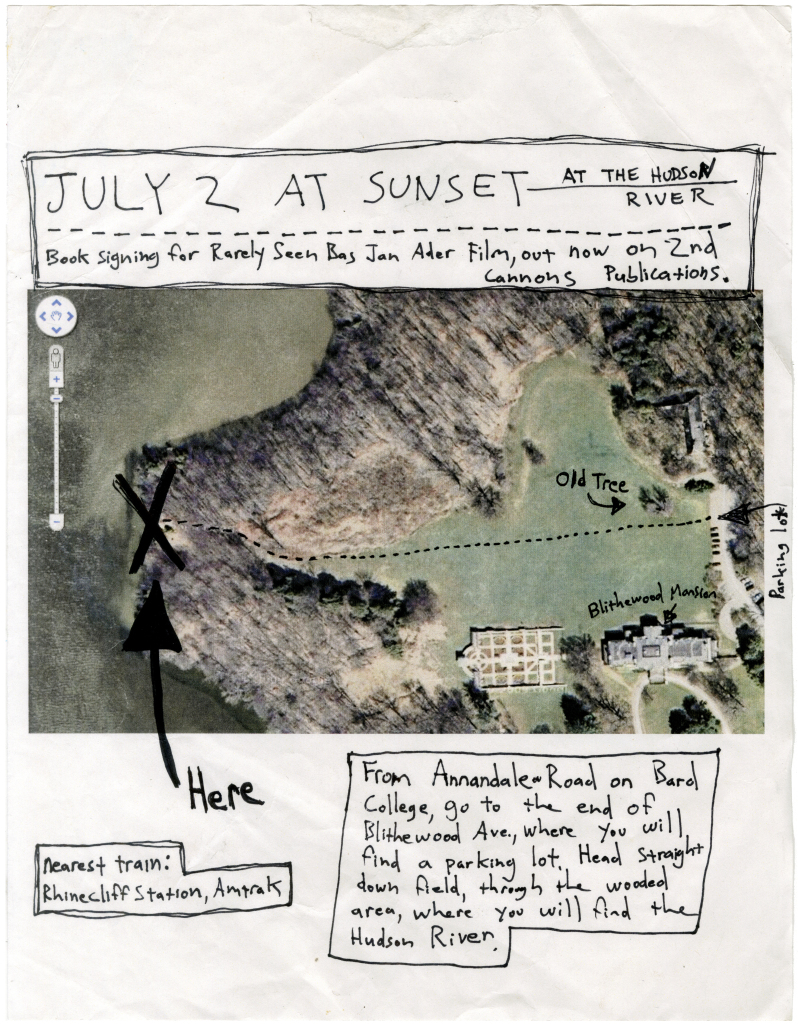 JULY 2 AT SUNSET AT THE HUDSON
RIVER
Book signing for Rarely Seen Bas Jan Ader Film, out now on 2nd
Cannons Publications.
Old Tree
Parking lot
Blithewood Mansion
Here
From Annandale Road on Bard
College, go to the end of
Blithewood Ave., where you will
find a parking lot. Head straight
down field, through the wooded
area, where you will find the
Hudson River.
nearest train:
Rhinecliff Station, Amtrak